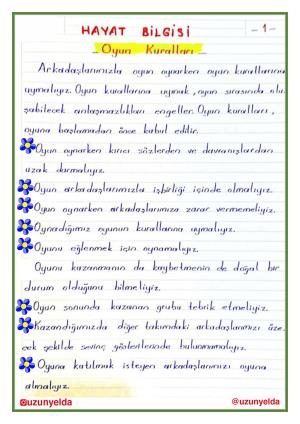 HAYAT BİLGİSİ
-1-
Oyun Kuralları
Arkadaşlarımızla oyun oynarken oyun kurallarına
uymalıyız. Oyun kurallarına uymak, oyun sırasında olu
şabilecek anlaşmazlıkları engeller. Oyun kuralları,
oyuna başlamadan önce kabul edilir.
Oyun oynarken kırıcı sözlerden ve davranışlardan
uzak durmalıyız.
Oyun arkadaşlarımızla işbirliği içinde olmalıyız.
Oyun oynarken arkadaşlarımıza zarar vermemeliyiz.
Oynadığımız oyunun kurallarına uymalıyız.
Oyunu eğlenmek için oynamalıyız.
Oyunu kazanmanın da kaybetmenin de doğal bir
durum olduğunu bilmeliyiz.
Oyun sonunda kazanan grubu tebrik etmeliyiz.
Kazandığımızda diğer takımdaki arkadaşlarımızı üze
cek şekilde sevinç gösterilerinde bulunmamalıyız.
Oyuna katılmak isteyen arkadaşlarımızı oyuna
almalıyız.
@uzunyelda
@uzunyelda